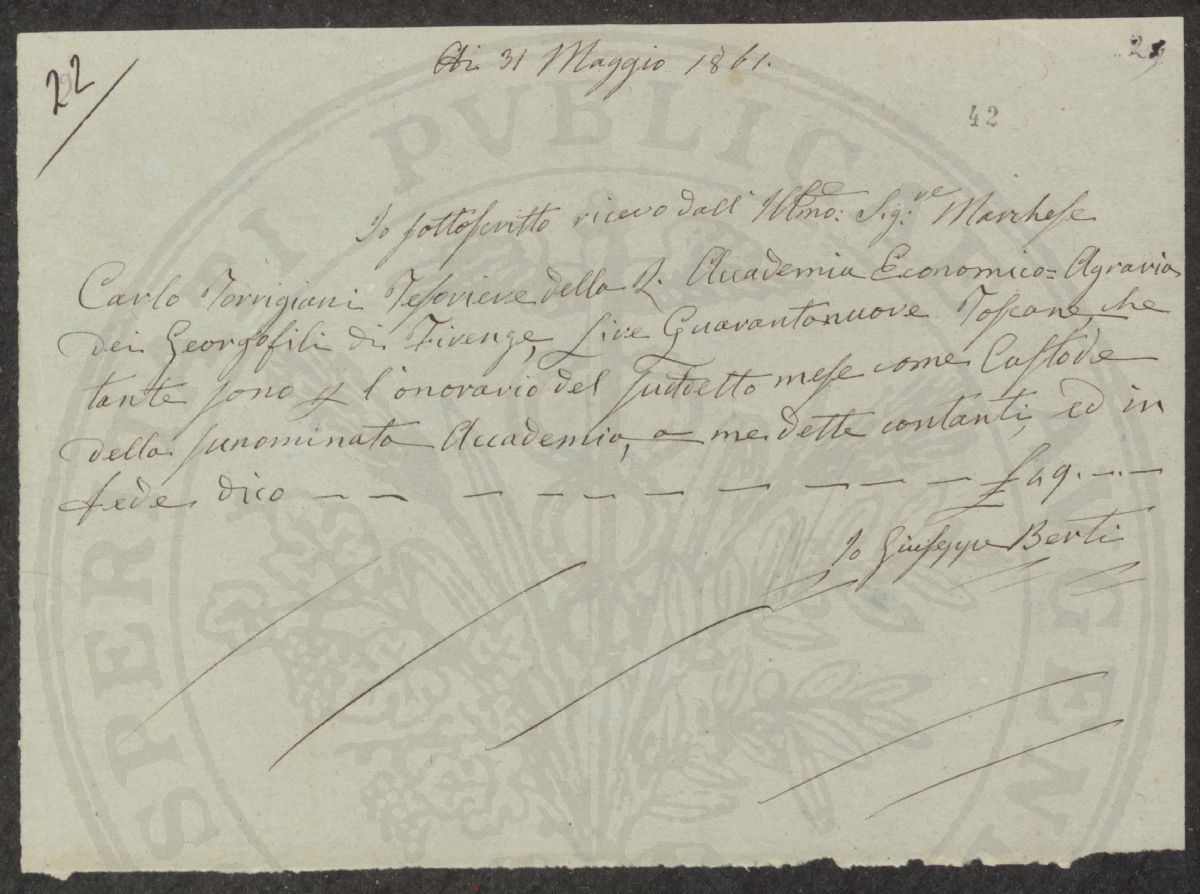 22
Adi 31 Maggio 1861.
42
Io sottoscritto ricevo dall' Illmo: Sig.re Marchese
Carlo Torrigiani Tesoriere della R. Accademia Economico=Agraria
dei Georgofili di Firenze, Lire Quarantanuove Toscane, che
tante sono p l'onorario del suddetto mese come Custode
della sunominata Accademia, a me dette contanti, ed in
fede dico — — — — — — — — — — £ 49. — . —
Io Giuseppe Berti
SPERATI PVBLIC